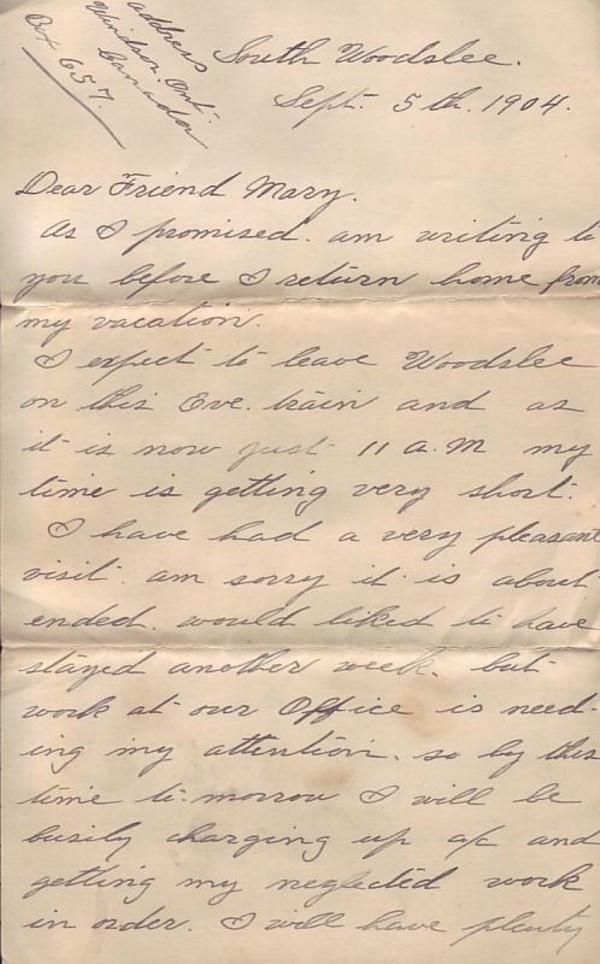 address
Windsor. Ont.
Canada
Box 657.
South Woodslee.
Sept. 5th. 1904.
Dear Friend Mary.
As I promised. am writing to
you before I return home from
my vacation.
I expect to leave Woodslee
on this Eve. train and as
it is now just 11 A.M my
time is getting very short.
I have had a very pleasant
visit. am sorry it is about
ended. would liked to have
stayed another week. but
work at our Office is need-
ing my attention. so by this
time to-morrow I will be
busily charging up a/c and
getting my neglected work
in order. I will have plenty